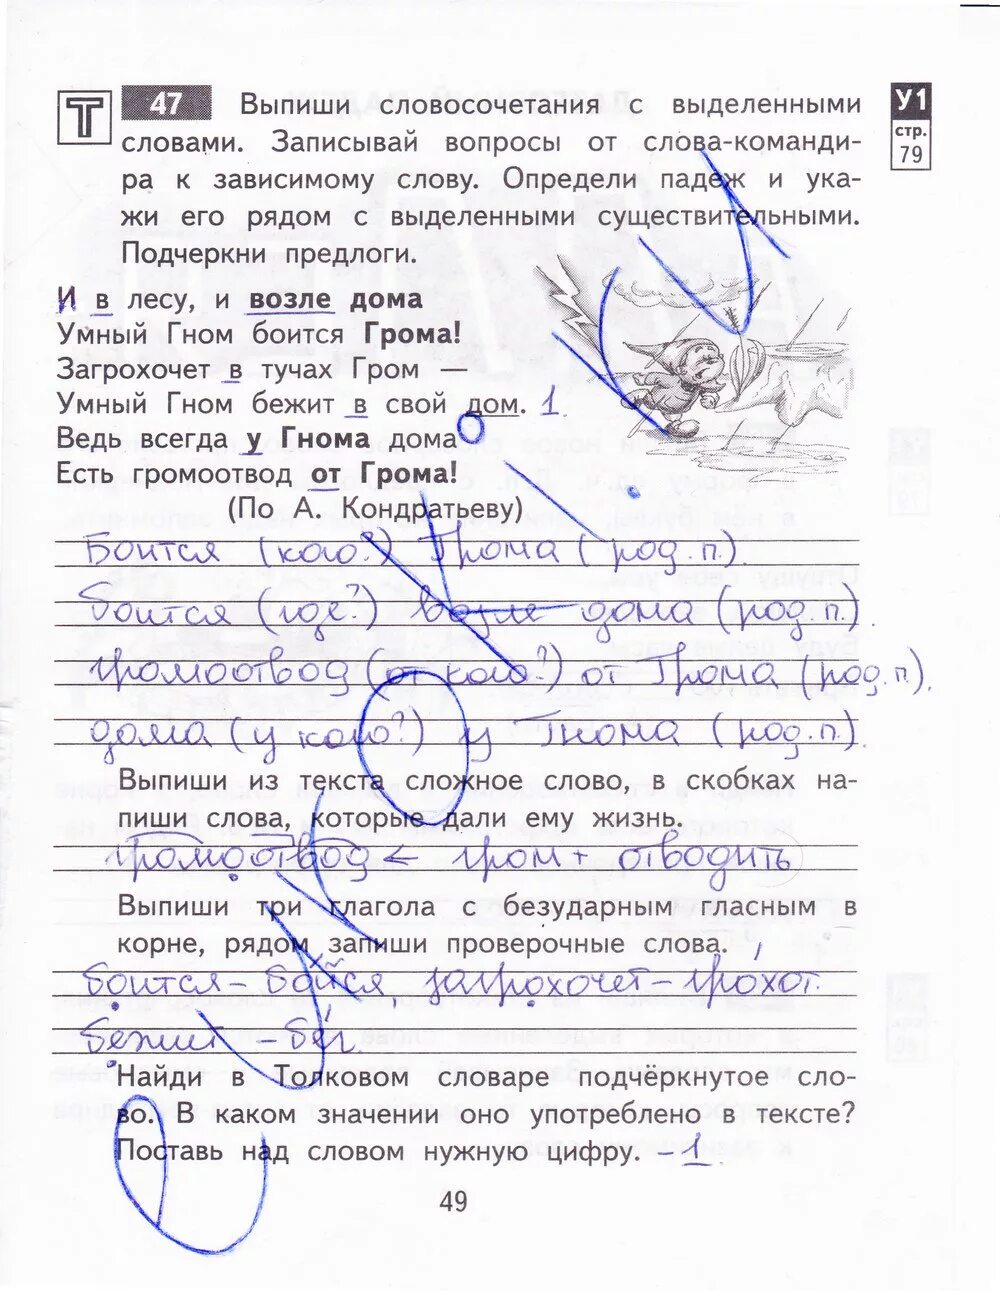 Т 47 Выпиши словосочетания с выделенными
У1
словами. Записывай вопросы от слова-команди-
стр.
ра к зависимому слову. Определи падеж и ука-
79
жи его рядом с выделенными существительными.
Подчеркни предлоги.
И в лесу, и возле дома
Умный Гном боится Грома!
Загрохочет в тучах Гром —
Умный Гном бежит в свой дом. 1
Ведь всегда у Гнома дома
Есть громоотвод от Грома!
(По А. Кондратьеву)
Боится (кого?) Грома (род.п.)
боится (где?) возле дома (род.п.)
громоотвод (от кого?) от Грома (род.п.),
дома (у кого?) у Гнома (род.п.)
Выпиши из текста сложное слово, в скобках на-
пиши слова, которые дали ему жизнь.
громоотвод ← гром + отводить
Выпиши три глагола с безударным гласным в
корне, рядом запиши проверочные слова.
боится – бойся загрохочет – грохот.
бежит – бег.
Найди в Толковом словаре подчёркнутое сло-
во. В каком значении оно употреблено в тексте?
Поставь над словом нужную цифру. – 1
49